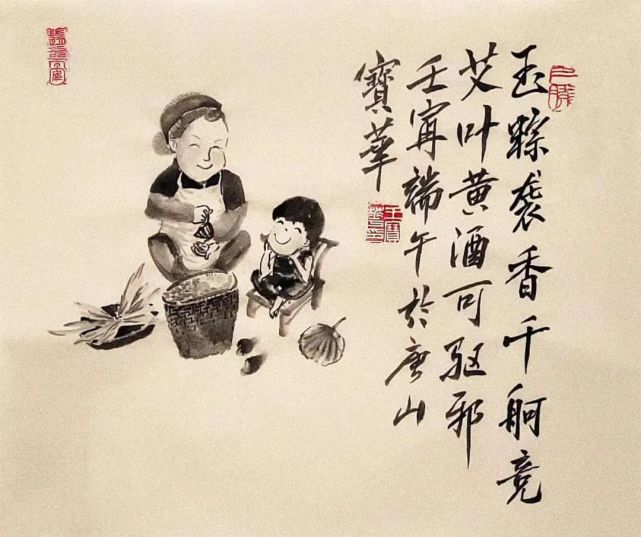 玉粽袭香千舸竞
艾叶黄酒可驱邪
壬寅端午於唐山
寶華
王寶